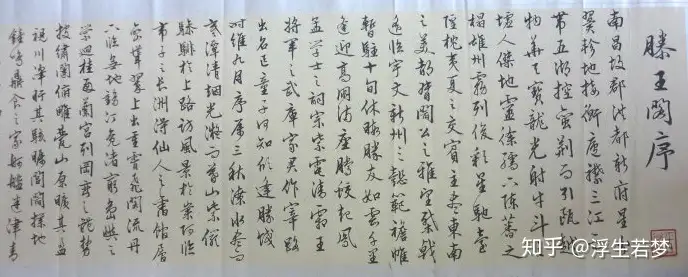 滕王阁序
南昌故郡洪都新府星
翼軫地接衡廬襟三江而
带五湖控蛮荆而引瓯越
物華天寶龍光射牛斗之
墟人傑地靈徐孺下陳蕃之
榻雄州霧列俊彩星馳臺
隍枕夷夏之交賓主盡東南
之美都督閻公之雅望棨戟
遥臨宇文新州之懿範襜帷
暫駐十旬休暇勝友如雲千里
逢迎高朋满座騰蛟起鳳
孟學士之詞宗紫電清霜王
將軍之武庫家君作宰路
出名區童子何知躬逢勝餞
时維九月序屬三秋潦水盡而
寒潭清烟光凝而暮山紫儼
驂騑於上路訪風景於崇阿臨
帝子之長洲得仙人之舊館層
巒聳翠上出重霄飛閣流丹
下臨無地鶴汀凫渚窮島嶼之
縈迴桂殿蘭宫列岡巒之體勢
披繡闥俯雕甍山原曠其盈
視川澤紆其駭矚閭閻撲地
鐘鳴鼎食之家舸艦迷津青
知乎 @浮生若梦